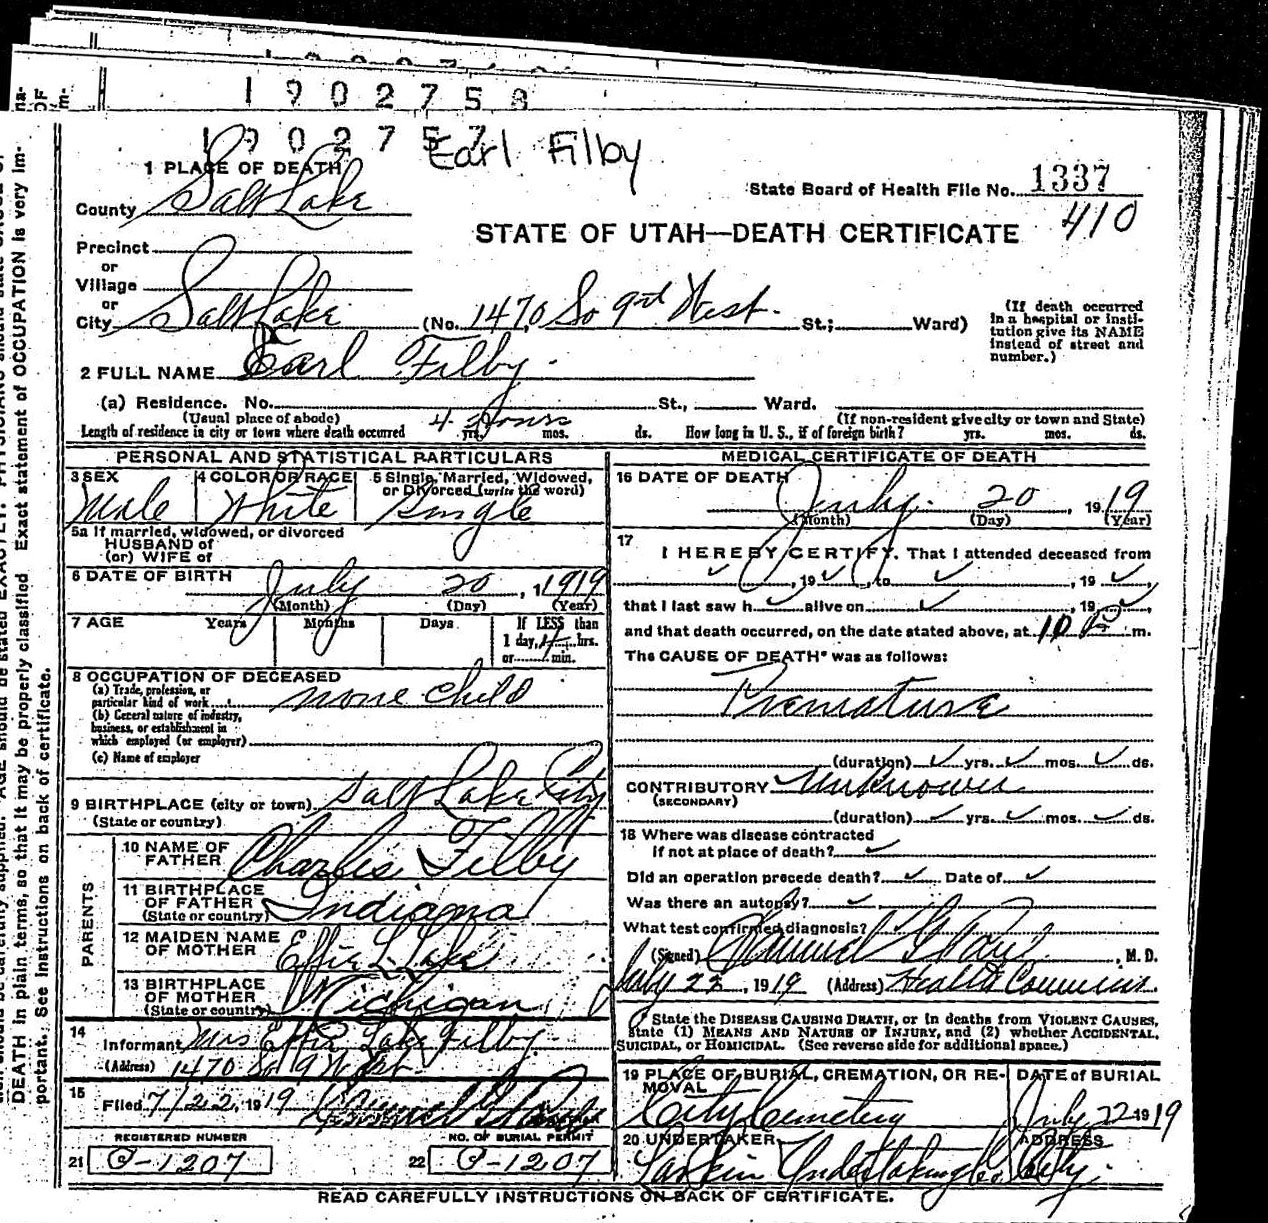 1902758
1902757
Earl Filby
1 PLACE OF DEATH
State Board of Health File No. 1337
County Salt Lake
410
STATE OF UTAH—DEATH CERTIFICATE
Precinct
or
Village
or
City Salt Lake (No. 1470 So 9th West St.; Ward)
(If death occurred in a hospital or institution give its NAME instead of street and number.)
2 FULL NAME Earl Filby
(a) Residence. No. St., Ward.
(Usual place of abode) (If non-resident give city or town and State)
Length of residence in city or town where death occurred 4 Hours yrs. mos. ds. How long in U. S., if of foreign birth? yrs. mos. ds.
PERSONAL AND STATISTICAL PARTICULARS
3 SEX Male
4 COLOR OR RACE White
5 Single, Married, Widowed, or Divorced (write the word) Single
5a If married, widowed, or divorced
HUSBAND of
(or) WIFE of
6 DATE OF BIRTH July 20, 1919
(Month) (Day) (Year)
7 AGE Years Months Days If LESS than
1 day, 4 hrs.
or min.
8 OCCUPATION OF DECEASED
(a) Trade, profession, or
particular kind of work none child
(b) General nature of industry,
business, or establishment in
which employed (or employer)
(c) Name of employer
9 BIRTHPLACE (city or town) Salt Lake City
(State or country)
PARENTS
10 NAME OF FATHER Charles Filby
11 BIRTHPLACE OF FATHER (State or country) Indiana
12 MAIDEN NAME OF MOTHER Effie L Lake
13 BIRTHPLACE OF MOTHER (State or country) Michigan
14 Informant Mrs Effie Lake Filby
(Address) 1470 So 9 West
15 Filed 7/22, 1919
REGISTERED NUMBER
21 C-1207
NO. OF BURIAL PERMIT
22 C-1207
MEDICAL CERTIFICATE OF DEATH
16 DATE OF DEATH July 20, 1919
(Month) (Day) (Year)
17 I HEREBY CERTIFY, That I attended deceased from
✓, 19 ✓, to ✓, 19 ✓,
that I last saw h ✓ alive on ✓, 19 ✓,
and that death occurred, on the date stated above, at 10 P m.
The CAUSE OF DEATH* was as follows:
Premature
(duration) ✓ yrs. ✓ mos. ✓ ds.
CONTRIBUTORY Unknown
(SECONDARY)
(duration) ✓ yrs. ✓ mos. ✓ ds.
18 Where was disease contracted
if not at place of death? ✓
Did an operation precede death? ✓ Date of ✓
Was there an autopsy? ✓
What test confirmed diagnosis?
(Signed) Samuel G Paul, M. D.
July 22, 1919 (Address) Health Commis.
* State the DISEASE CAUSING DEATH, or in deaths from VIOLENT CAUSES,
state (1) MEANS AND NATURE OF INJURY, and (2) whether ACCIDENTAL,
SUICIDAL, or HOMICIDAL. (See reverse side for additional space.)
19 PLACE OF BURIAL, CREMATION, OR REMOVAL City Cemetery
DATE of BURIAL July 22 1919
20 UNDERTAKER Larkin Undertaking Co.
ADDRESS City.
READ CAREFULLY INSTRUCTIONS ON BACK OF CERTIFICATE.
DEATH in plain terms, so that it may be properly classified. Exact statement of OCCUPATION is very im-
portant. See instructions on back of certificate.